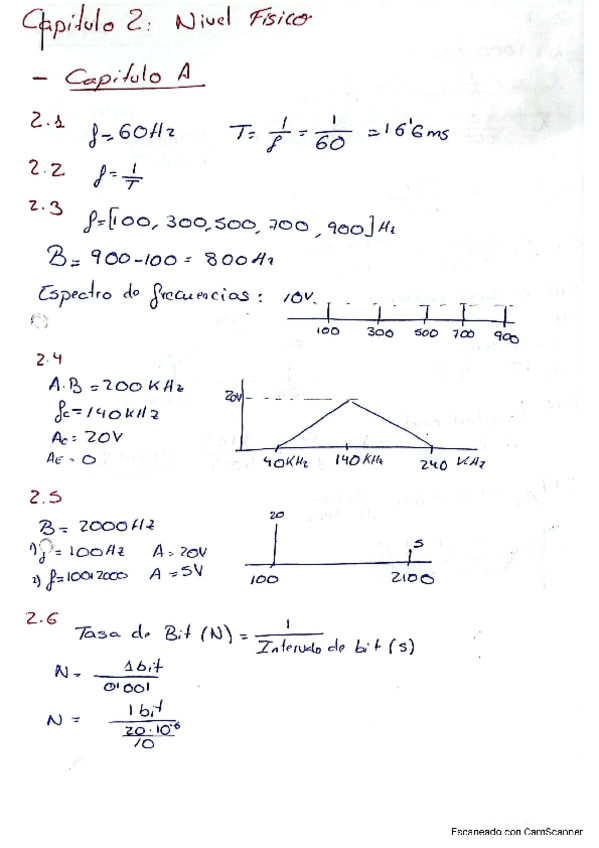 Capitulo 2: Nivel Físico
- Capitulo A
2.1 f=60Hz T= 1/f = 1/60 = 16'6ms
2.2 f= 1/T
2.3 f=[100, 300, 500, 700, 900] Hz
B= 900-100 = 800Hz
Espectro de frecuencias: 10V
100 300 500 700 900
2.4
A.B = 200 KHz
fc = 140 kHz
Ac = 20V
AE = 0
20V
40KHz 140KHz 240 KHz
2.5
B = 2000Hz
1) f = 100Hz A = 20V
2) f = 100+2000 A = 5V
20
5
100 2100
2.6
Tasa de Bit (N) = 1 / Intervalo de bit (s)
N = 1bit / 0'001
N = 1 bit / 20·10⁻⁶ / 10
Escaneado con CamScanner